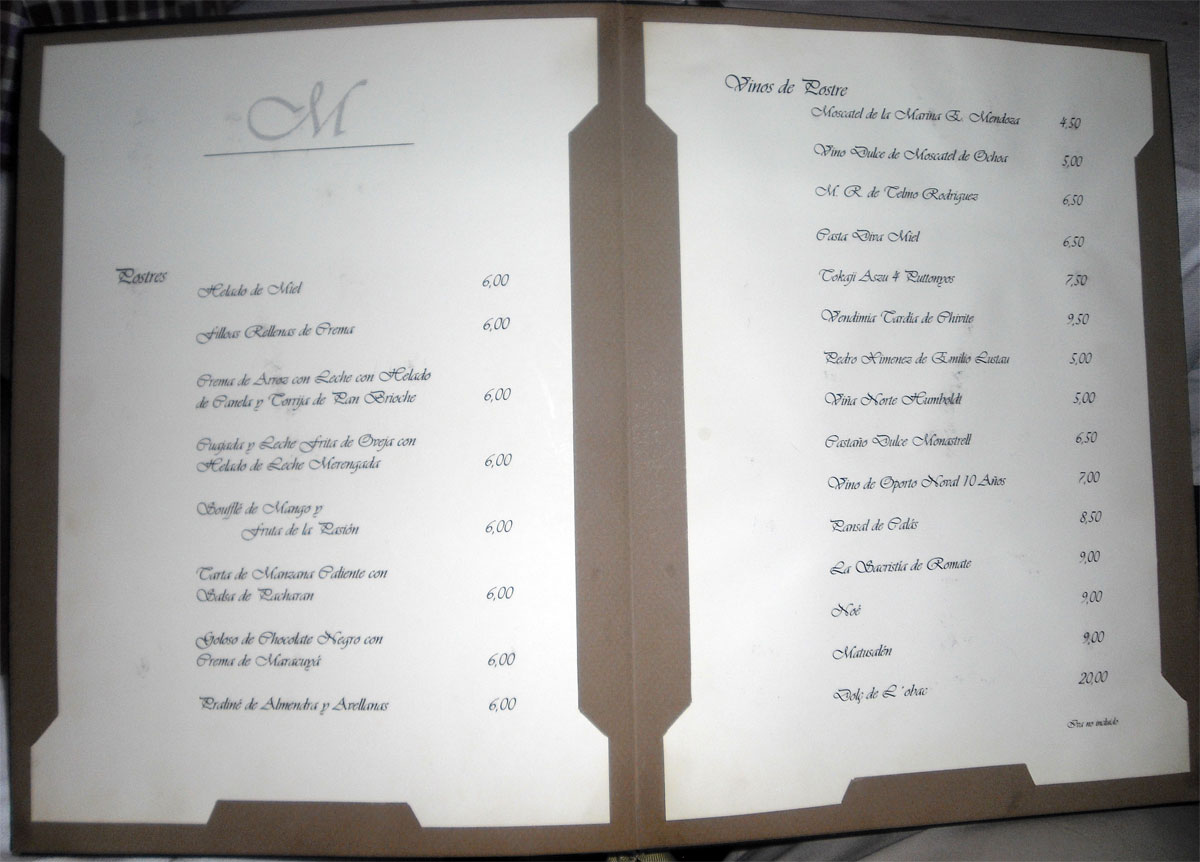 ~M
Postres
Helado de Miel 6,00
Filloas Rellenas de Crema 6,00
Crema de Arroz con Leche con Helado
de Canela y Torrija de Pan Brioche 6,00
Cuajada y Leche Frita de Oveja con
Helado de Leche Merengada 6,00
Soufflé de Mango y
Fruta de la Pasión 6,00
Tarta de Manzana Caliente con
Salsa de Pacharan 6,00
Goloso de Chocolate Negro con
Crema de Maracuyá 6,00
Praliné de Almendra y Avellanas 6,00
Vinos de Postre
Moscatel de la Marina E. Mendoza 4,50
Vino Dulce de Moscatel de Ochoa 5,00
M. R. de Telmo Rodriguez 6,50
Casta Diva Miel 6,50
Tokaji Aszu 4 Puttonyos 7,50
Vendimia Tardía de Chivite 9,50
Pedro Ximenez de Emilio Lustau 5,00
Viña Norte Humboldt 5,00
Castaño Dulce Monastrell 6,50
Vino de Oporto Noval 10 Años 7,00
Pansal de Calás 8,50
La Sacristía de Romate 9,00
Noé 9,00
Matusalén 9,00
Dolç de L´obac 20,00
Iva no incluido